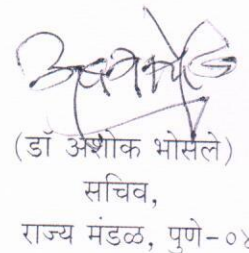 (डॉ अशोक भोसले)
सचिव,
राज्य मंडळ, पुणे-०४